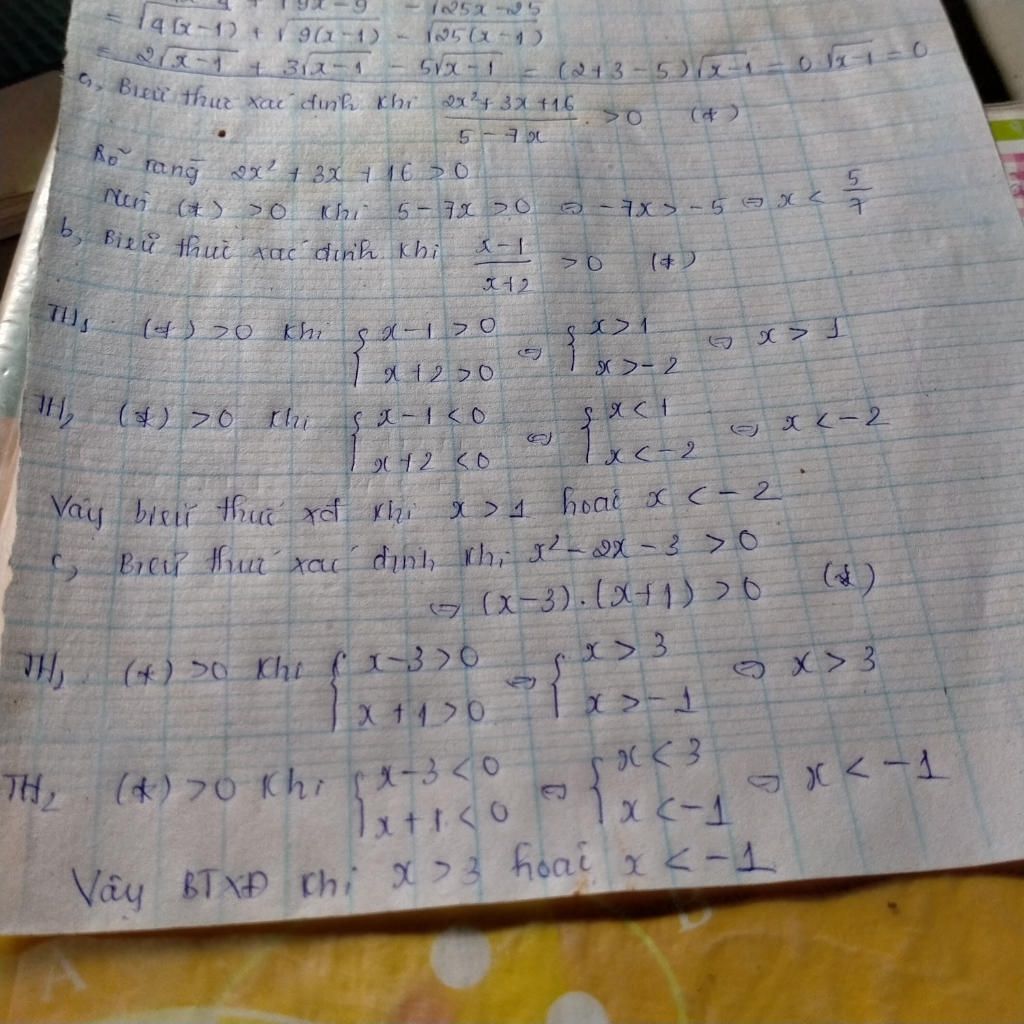 9x-9 - √25x-25
= √4(x-1) + √9(x-1) - √25(x-1)
= 2√x-1 + 3√x-1 - 5√x-1 = (2+3-5)√x-1 = 0√x-1 = 0
a, Biểu thức xác định khi (2x²+3x+16)/(5-7x) > 0 (*)
Rõ ràng 2x² + 3x + 16 > 0
Nên (*) > 0 khi 5-7x > 0 ⇔ -7x > -5 ⇔ x < 5/7
b, Biểu thức xác định khi (x-1)/(x+2) > 0 (*)
TH1 (*) > 0 khi { x-1 > 0 ; x+2 > 0 ⇔ { x > 1 ; x > -2 ⇔ x > 1
TH2 (*) > 0 khi { x-1 < 0 ; x+2 < 0 ⇔ { x < 1 ; x < -2 ⇔ x < -2
Vậy biểu thức xđ khi x > 1 hoặc x < -2
c, Biểu thức xác định khi x² - 2x - 3 > 0
⇔ (x-3).(x+1) > 0 (*)
TH1 (*) > 0 khi { x-3 > 0 ; x+1 > 0 ⇔ { x > 3 ; x > -1 ⇔ x > 3
TH2 (*) > 0 khi { x-3 < 0 ; x+1 < 0 ⇔ { x < 3 ; x < -1 ⇔ x < -1
Vậy BTXĐ khi x > 3 hoặc x < -1